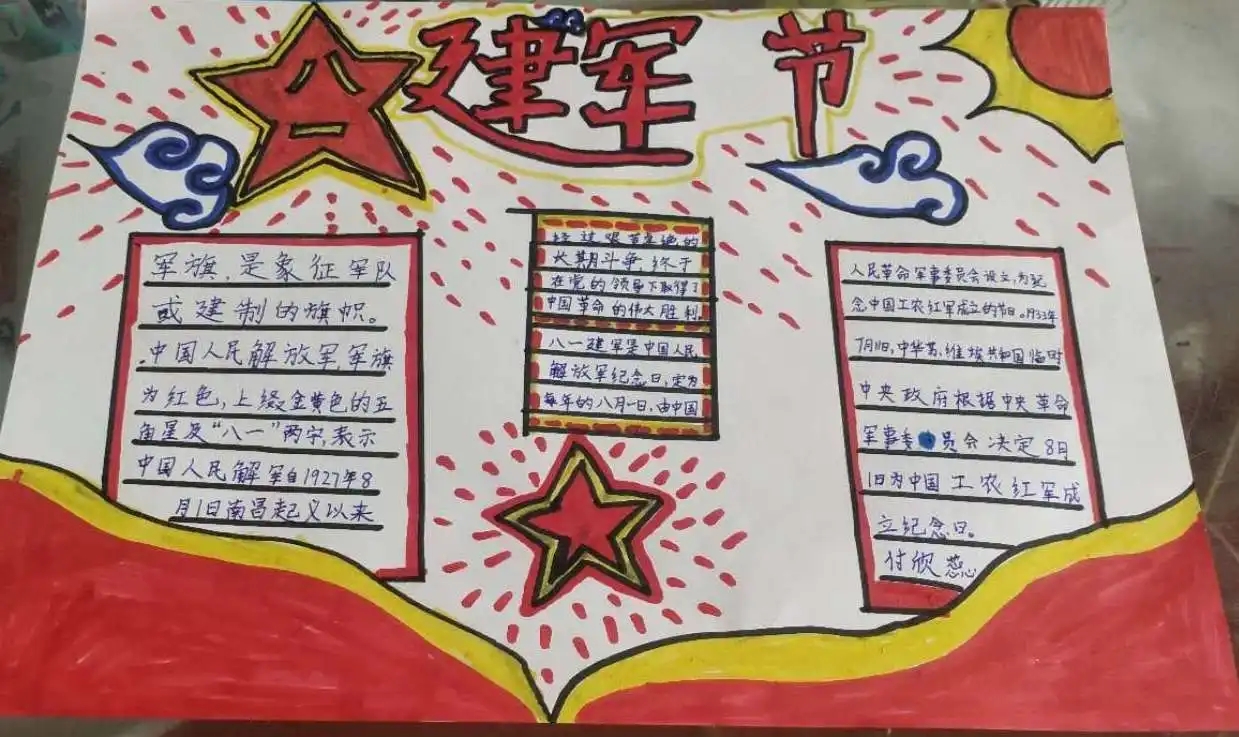 八一
建军节
军旗,是象征军队
或建制的旗帜。
中国人民解放军,军旗
为红色,上缀金黄色的五
角星及“八一”两字,表示
中国人民解军自1927年8
月1日南昌起义以来
经过艰苦卓绝的
长期斗争,终于
在党的领导下取得了
中国革命的伟大胜利。
八一建军是中国人民
解放军纪念日,定为
每年的八月一日,由中国
人民革命军事委员会设立,为纪
念中国工农红军成立的节日。1933年
7月11日,中华苏维埃共和国临时
中央政府根据中央革命
军事委员会决定8月
1日为中国工农红军成
立纪念日。
付欣蕊